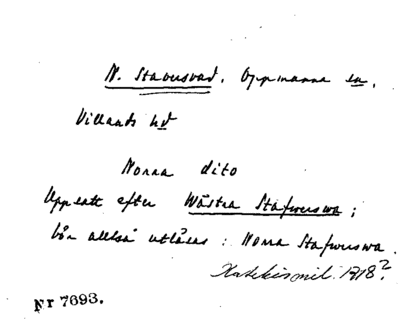 N. Staversvad, Oppmanna sn,
Villands hd
Norra dito
Uppsatt efter Wästra Stafverswa;
bör alltså utläsas: Norra Stafverswa.
1718?
Nr 7693.